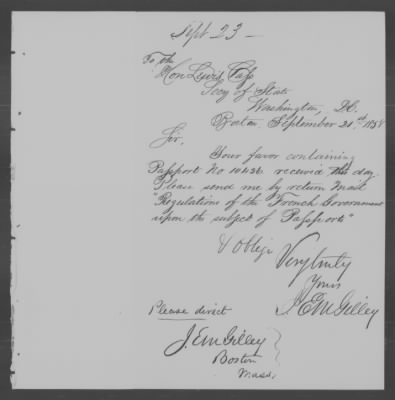 Sept 23 —
To the
Hon Lewis Cass
Secy of State
Washington, DC.
Boston September 21st 1858
Sir,
Your favor containing
Passport No received this day.
Please send me by return mail
"Regulations of the French Government
upon the subject of Passports"
& Oblige
Very truly
Yours
J. E. M. Gilley
Please direct
J. E. M. Gilley
Boston
Mass,